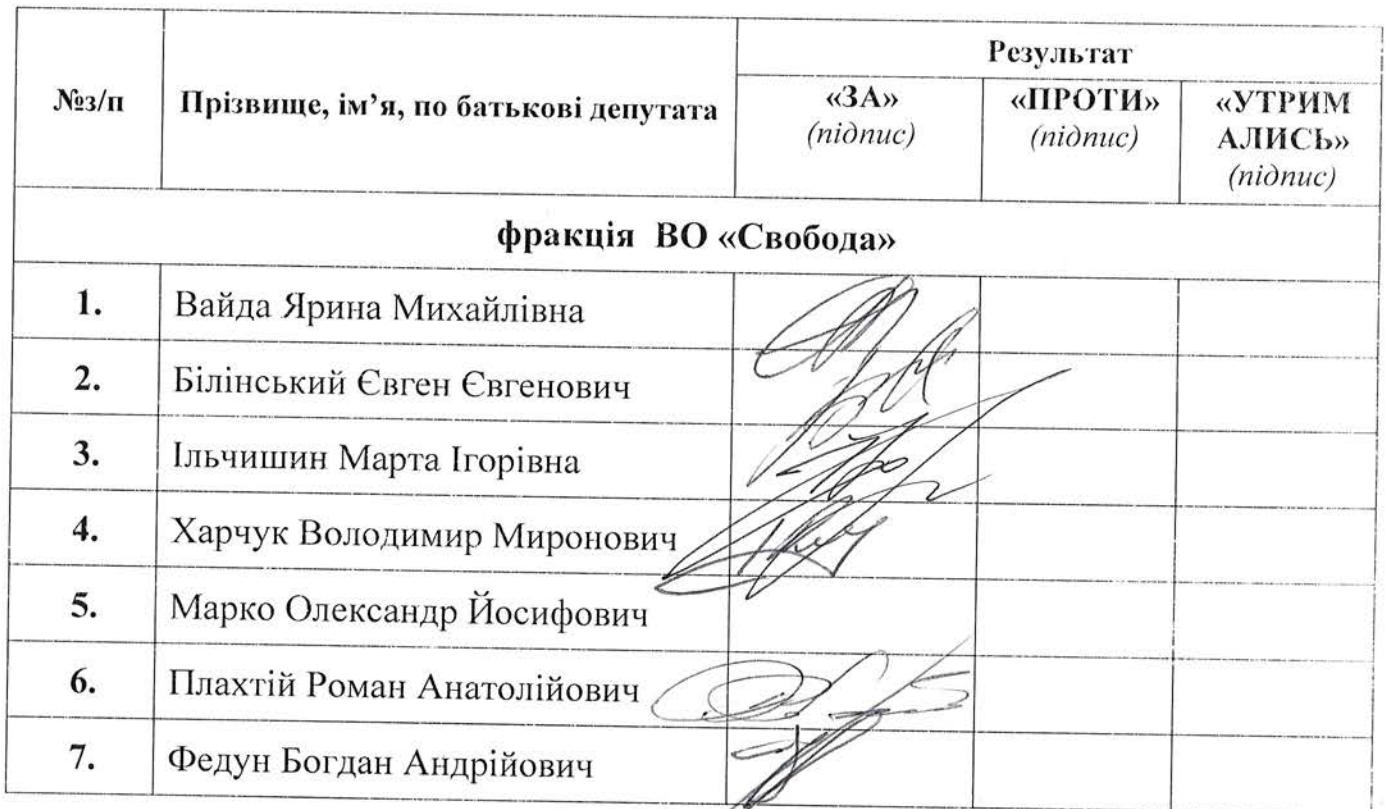 №з/п
Прізвище, ім’я, по батькові депутата
Результат
«ЗА»
(підпис)
«ПРОТИ»
(підпис)
«УТРИМ
АЛИСЬ»
(підпис)
фракція ВО «Свобода»
1. Вайда Ярина Михайлівна
2. Білінський Євген Євгенович
3. Ільчишин Марта Ігорівна
4. Харчук Володимир Миронович
5. Марко Олександр Йосифович
6. Плахтій Роман Анатолійович
7. Федун Богдан Андрійович